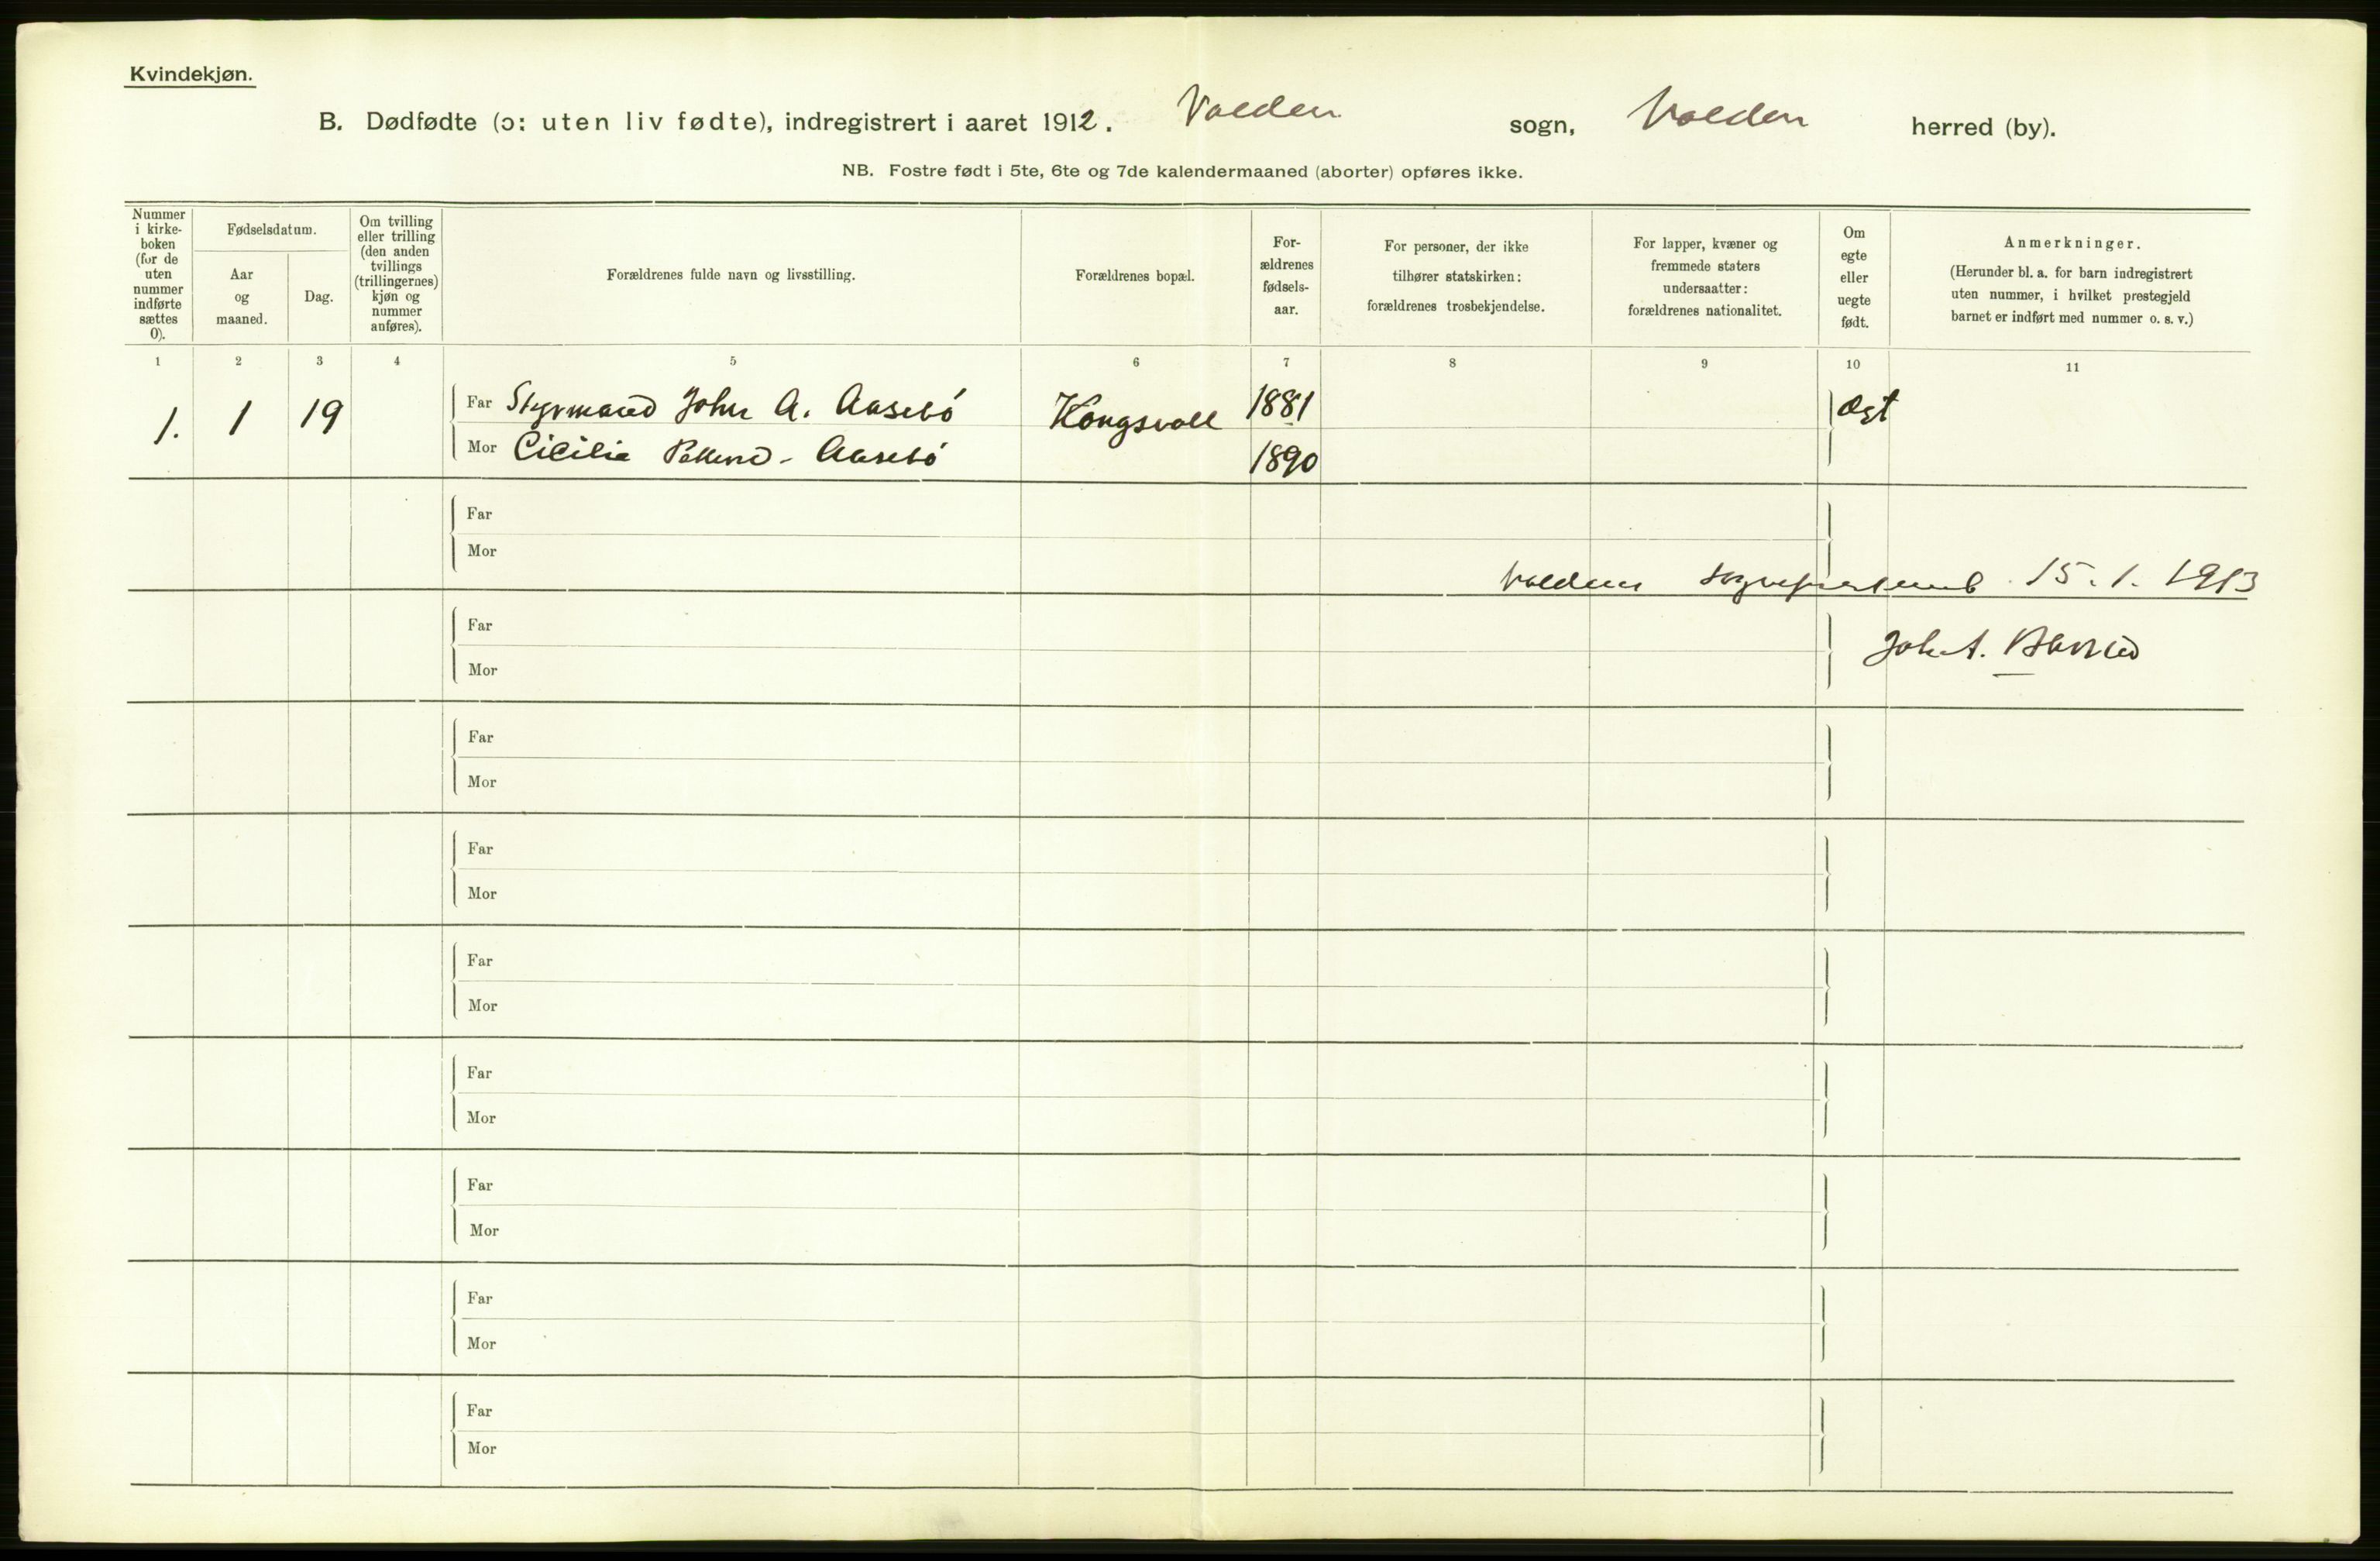 Kvindekjøn.
B. Dødfødte (ɔ: uten liv fødte), indregistrert i aaret 1912. Volden sogn, Volden herred (by).
NB. Fostre født i 5te, 6te og 7de kalendermaaned (aborter) opføres ikke.
Nummer
i kirke-
boken
(for de
uten
nummer
indførte
sættes
0).
Fødselsdatum.
Aar
og
maaned.
Dag.
Om tvilling
eller trilling
(den anden
tvillings
(trillingernes)
kjøn og
nummer
anføres).
Forældrenes fulde navn og livsstilling.
Forældrenes bopæl.
For-
ældrenes
fødsels-
aar.
For personer, der ikke
tilhører statskirken:
forældrenes trosbekjendelse.
For lapper, kvæner og
fremmede staters
undersaatter:
forældrenes nationalitet.
Om
egte
eller
uegte
født.
Anmerkninger.
(Herunder bl. a. for barn indregistrert
uten nummer, i hvilket prestegjeld
barnet er indført med nummer o. s. v.)
1 2 3 4 5 6 7 8 9 10 11
1. 1 19 Far Styrmand John A. Aasebó Kongsvoll 1881 Ægt
Mor Cicilie Aasebó 1890
Far
Mor
15.1.1913
Far
Mor
Far
Mor
Far
Mor
Far
Mor
Far
Mor
Far
Mor
Far
Mor
Far
Mor